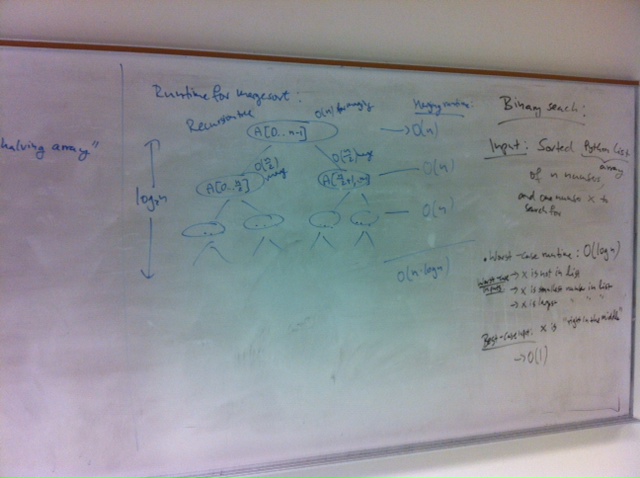 halving array"
Runtime for mergesort:
Recursion tree
O(n) for merging
Merging runtime:
A[0..n-1]
→ O(n)
O(n/2) merge
O(n/2) merge
A[0..n/2]
A[n/2+1..n-1]
O(n)
log₂n
O(n)
...
...
...
...
O(n·logn)
Binary search:
Input: Sorted Python List
array
of n number,
and one number x to
search for
• Worst-case runtime: O(logn)
Worst-case
inputs
→ x is not in list
→ x is smallest number in list
→ x is largest " " "
Best-case input: x is "right in the middle"
→ O(1)